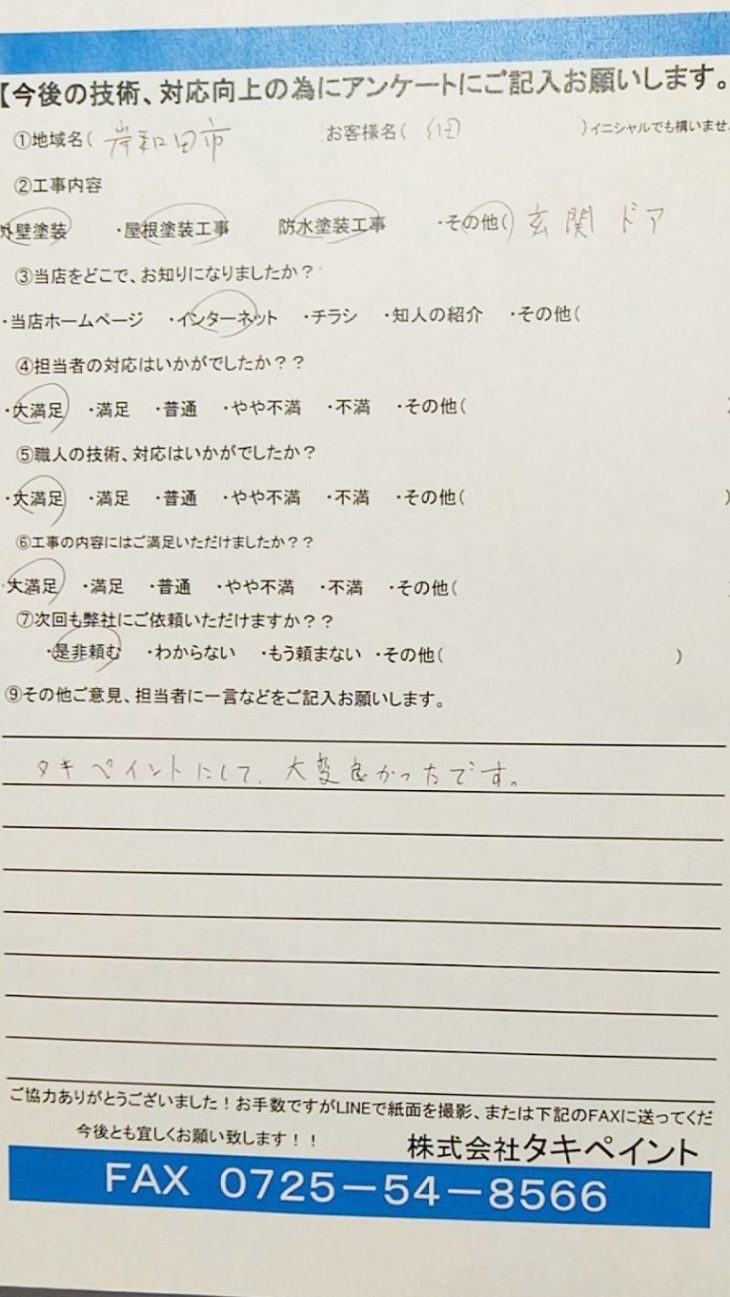 【今後の技術、対応向上の為にアンケートにご記入お願いします。
①地域名( 岸和田市 お客様名( 細 )イニシャルでも構いませ
②工事内容
外壁塗装 ・屋根塗装工事 防水塗装工事 ・その他( ) 玄関ドア
③当店をどこで、お知りになりましたか?
・当店ホームページ ・インターネット ・チラシ ・知人の紹介 ・その他(
④担当者の対応はいかがでしたか??
・大満足 ・満足 ・普通 ・やや不満 ・不満 ・その他( )
⑤職人の技術、対応はいかがでしたか?
・大満足 ・満足 ・普通 ・やや不満 ・不満 ・その他( )
⑥工事の内容にはご満足いただけましたか??
・大満足 ・満足 ・普通 ・やや不満 ・不満 ・その他(
⑦次回も弊社にご依頼いただけますか??
・是非頼む ・わからない ・もう頼まない ・その他( )
⑨その他ご意見、担当者に一言などをご記入お願いします。
タキペイントにして、大変良かったです。
ご協力ありがとうございました!お手数ですがLINEで紙面を撮影、または下記のFAXに送ってくだ
今後とも宜しくお願い致します!! 株式会社タキペイント
FAX 0725-54-8566